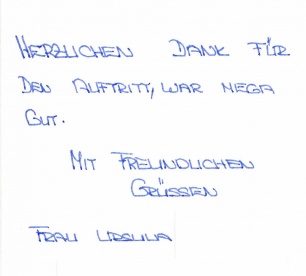 HERZLICHEN DANK FÜR
DEN AUFTRITT, WAR MEGA
GUT.
MIT FREUNDLICHEN
GRÜSSEN
FRAU URSULA